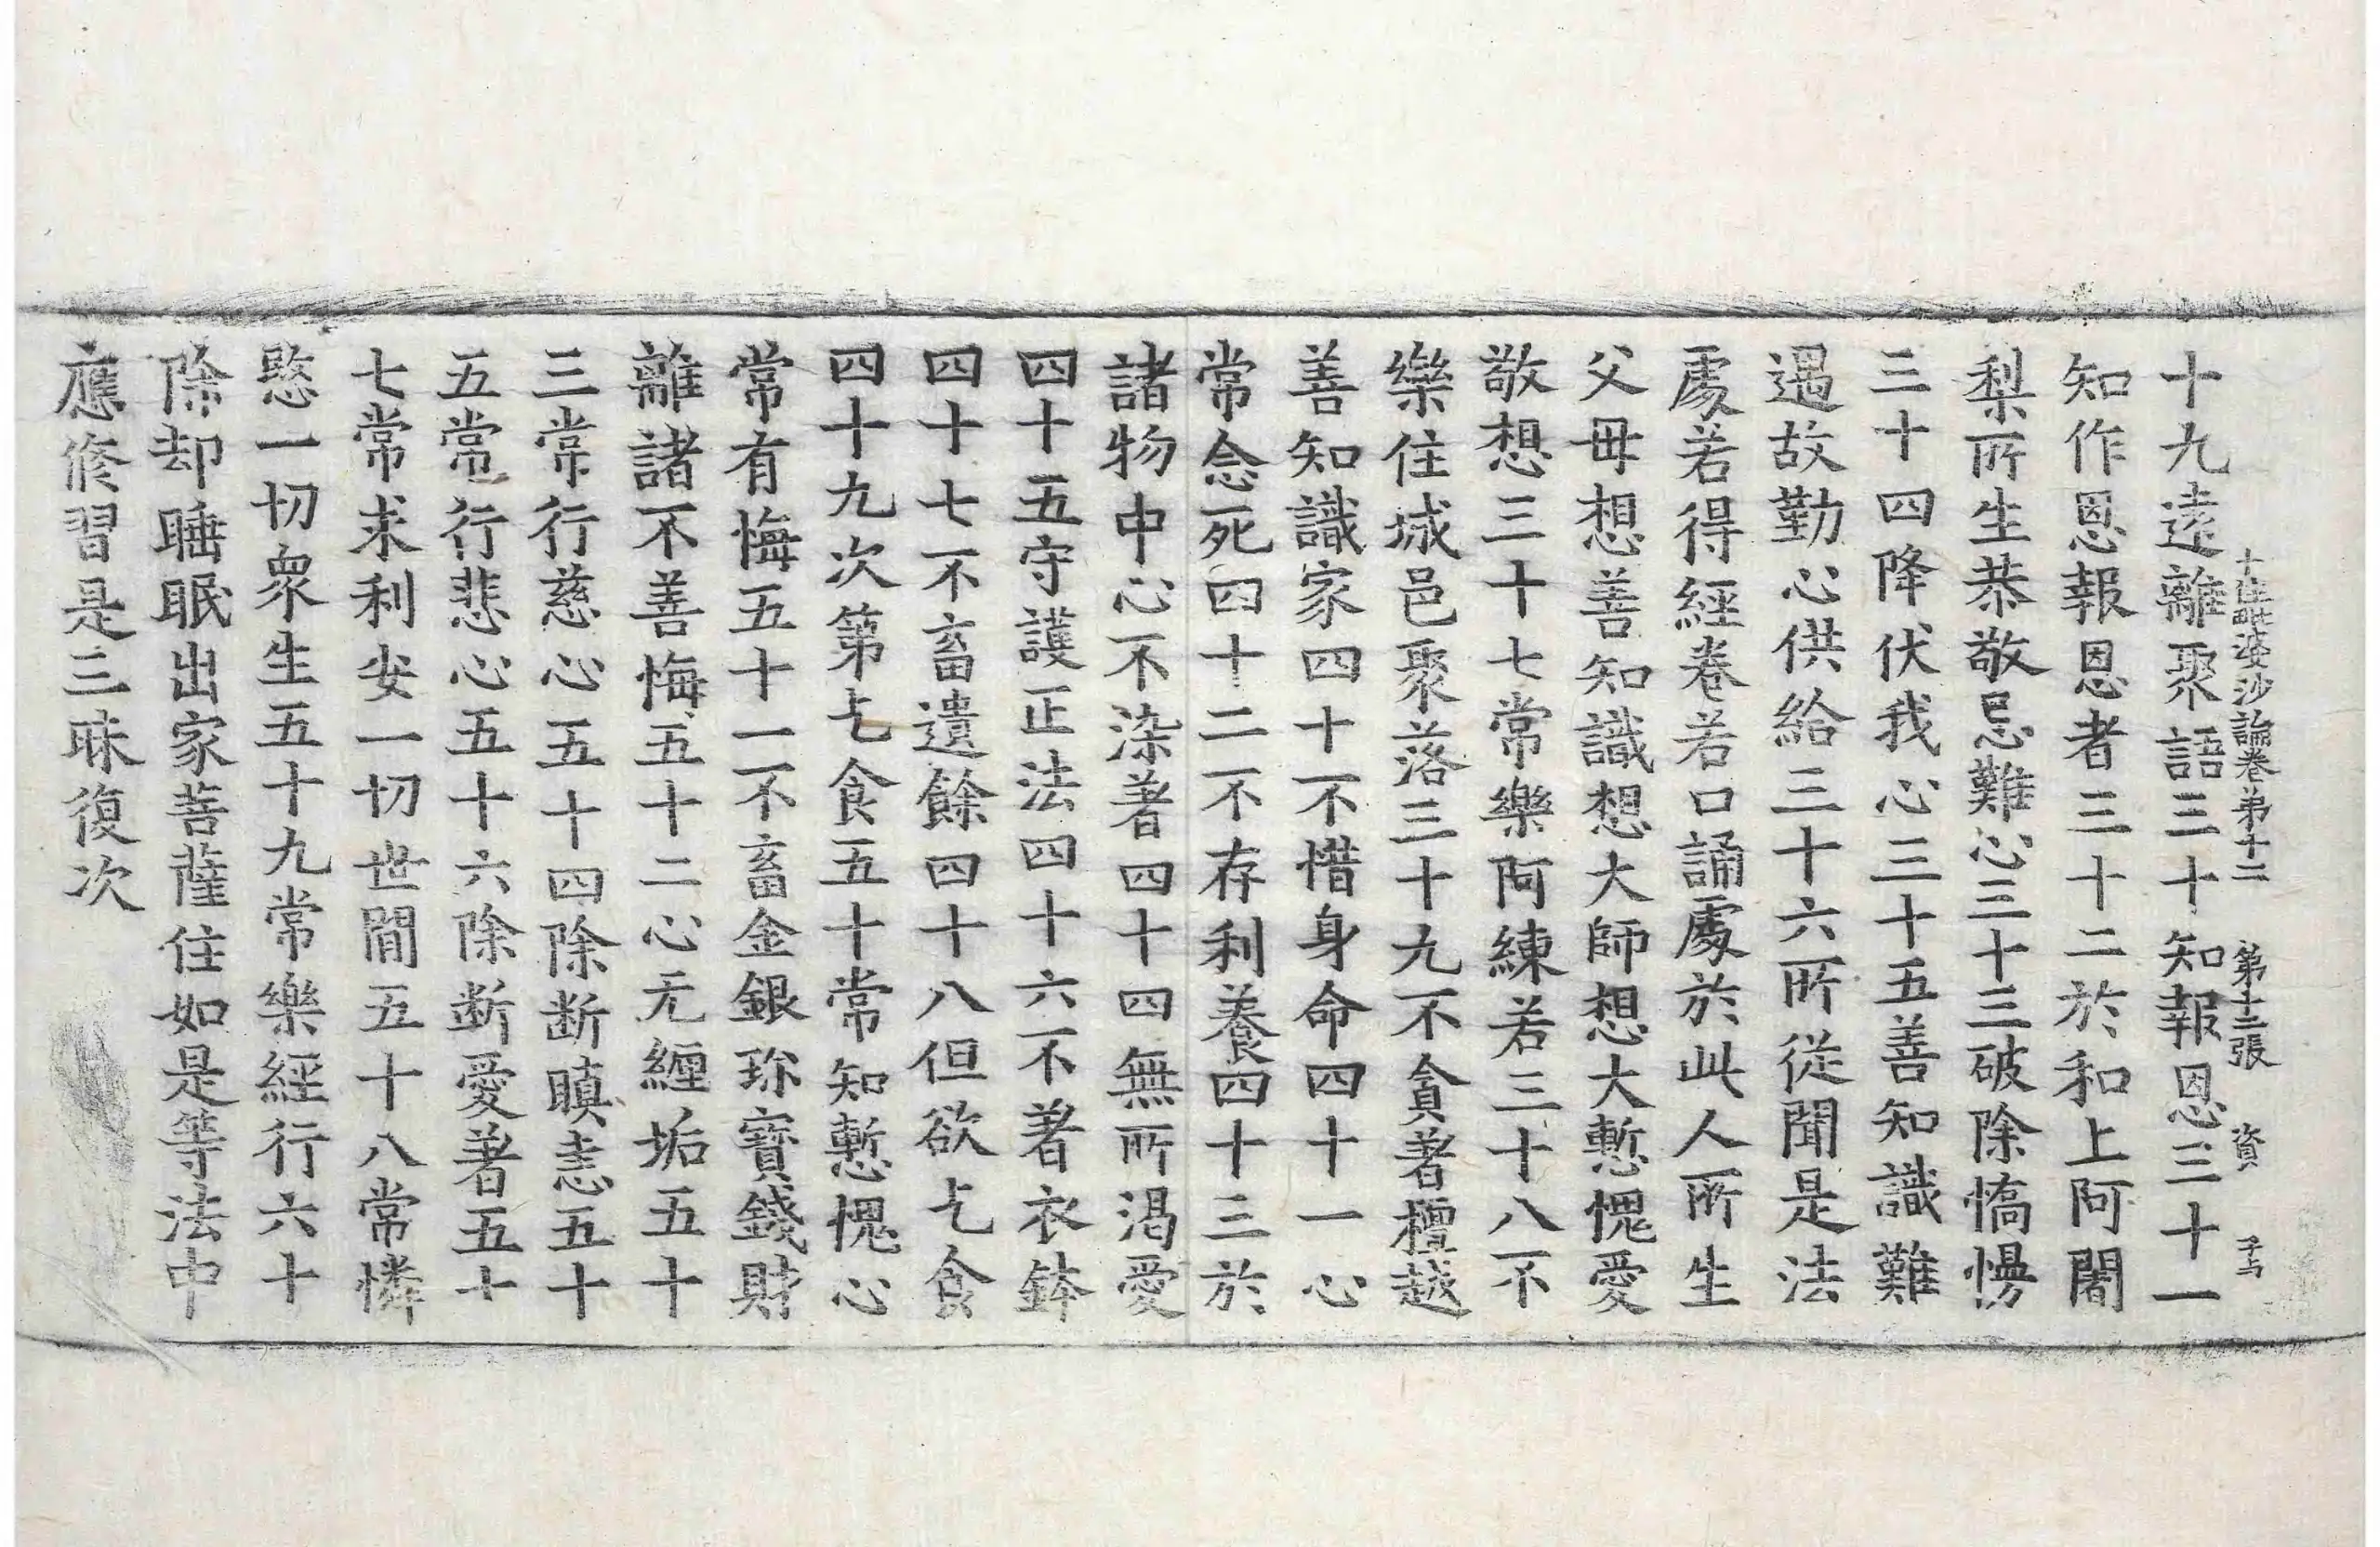 十住毗婆沙論卷第十二 第十二張 資 子与
十九遠離聚語三十知報恩三十一
知作恩報恩者三十二於和上阿闍
梨所生恭敬忌難心三十三破除憍慢
三十四降伏我心三十五善知識難
遇故勤心供給三十六所從聞是法
處若得經卷若口誦處於此人所生
父母想善知識想大師想大慙愧愛
敬想三十七常樂阿練若三十八不
樂住城邑聚落三十九不貪著檀越
善知識家四十不惜身命四十一心
常念死四十二不存利養四十三於
諸物中心不染著四十四無所渴愛
四十五守護正法四十六不著衣鉢
四十七不畜遺餘四十八但欲乞食
四十九次第乞食五十常知慙愧心
常有悔五十一不畜金銀珎寶錢財
離諸不善悔五十二心无纏垢五十
三常行慈心五十四除断瞋恚五十
五常行悲心五十六除断愛著五十
七常求利安一切世間五十八常憐
愍一切衆生五十九常樂經行六十
除却睡眠出家菩薩住如是等法中
應修習是三昧復次